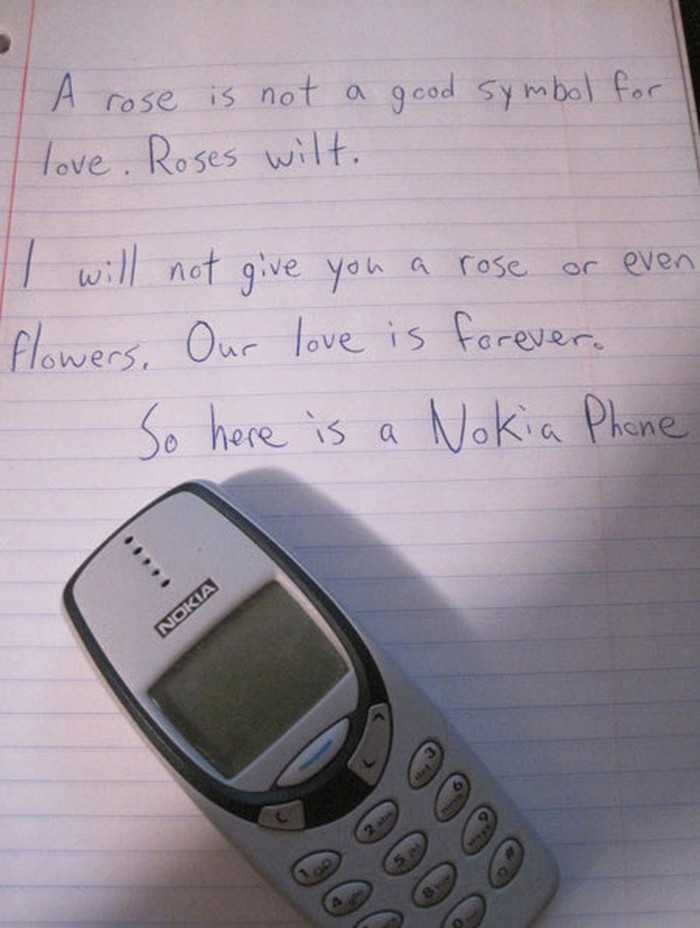 A rose is not a good symbol for
love. Roses wilt.
I will not give you a rose or even
flowers. Our love is forever.
So here is a Nokia Phone
NOKIA
C
3
6
2 abc
9
5 jkl
#
1
8
4
0